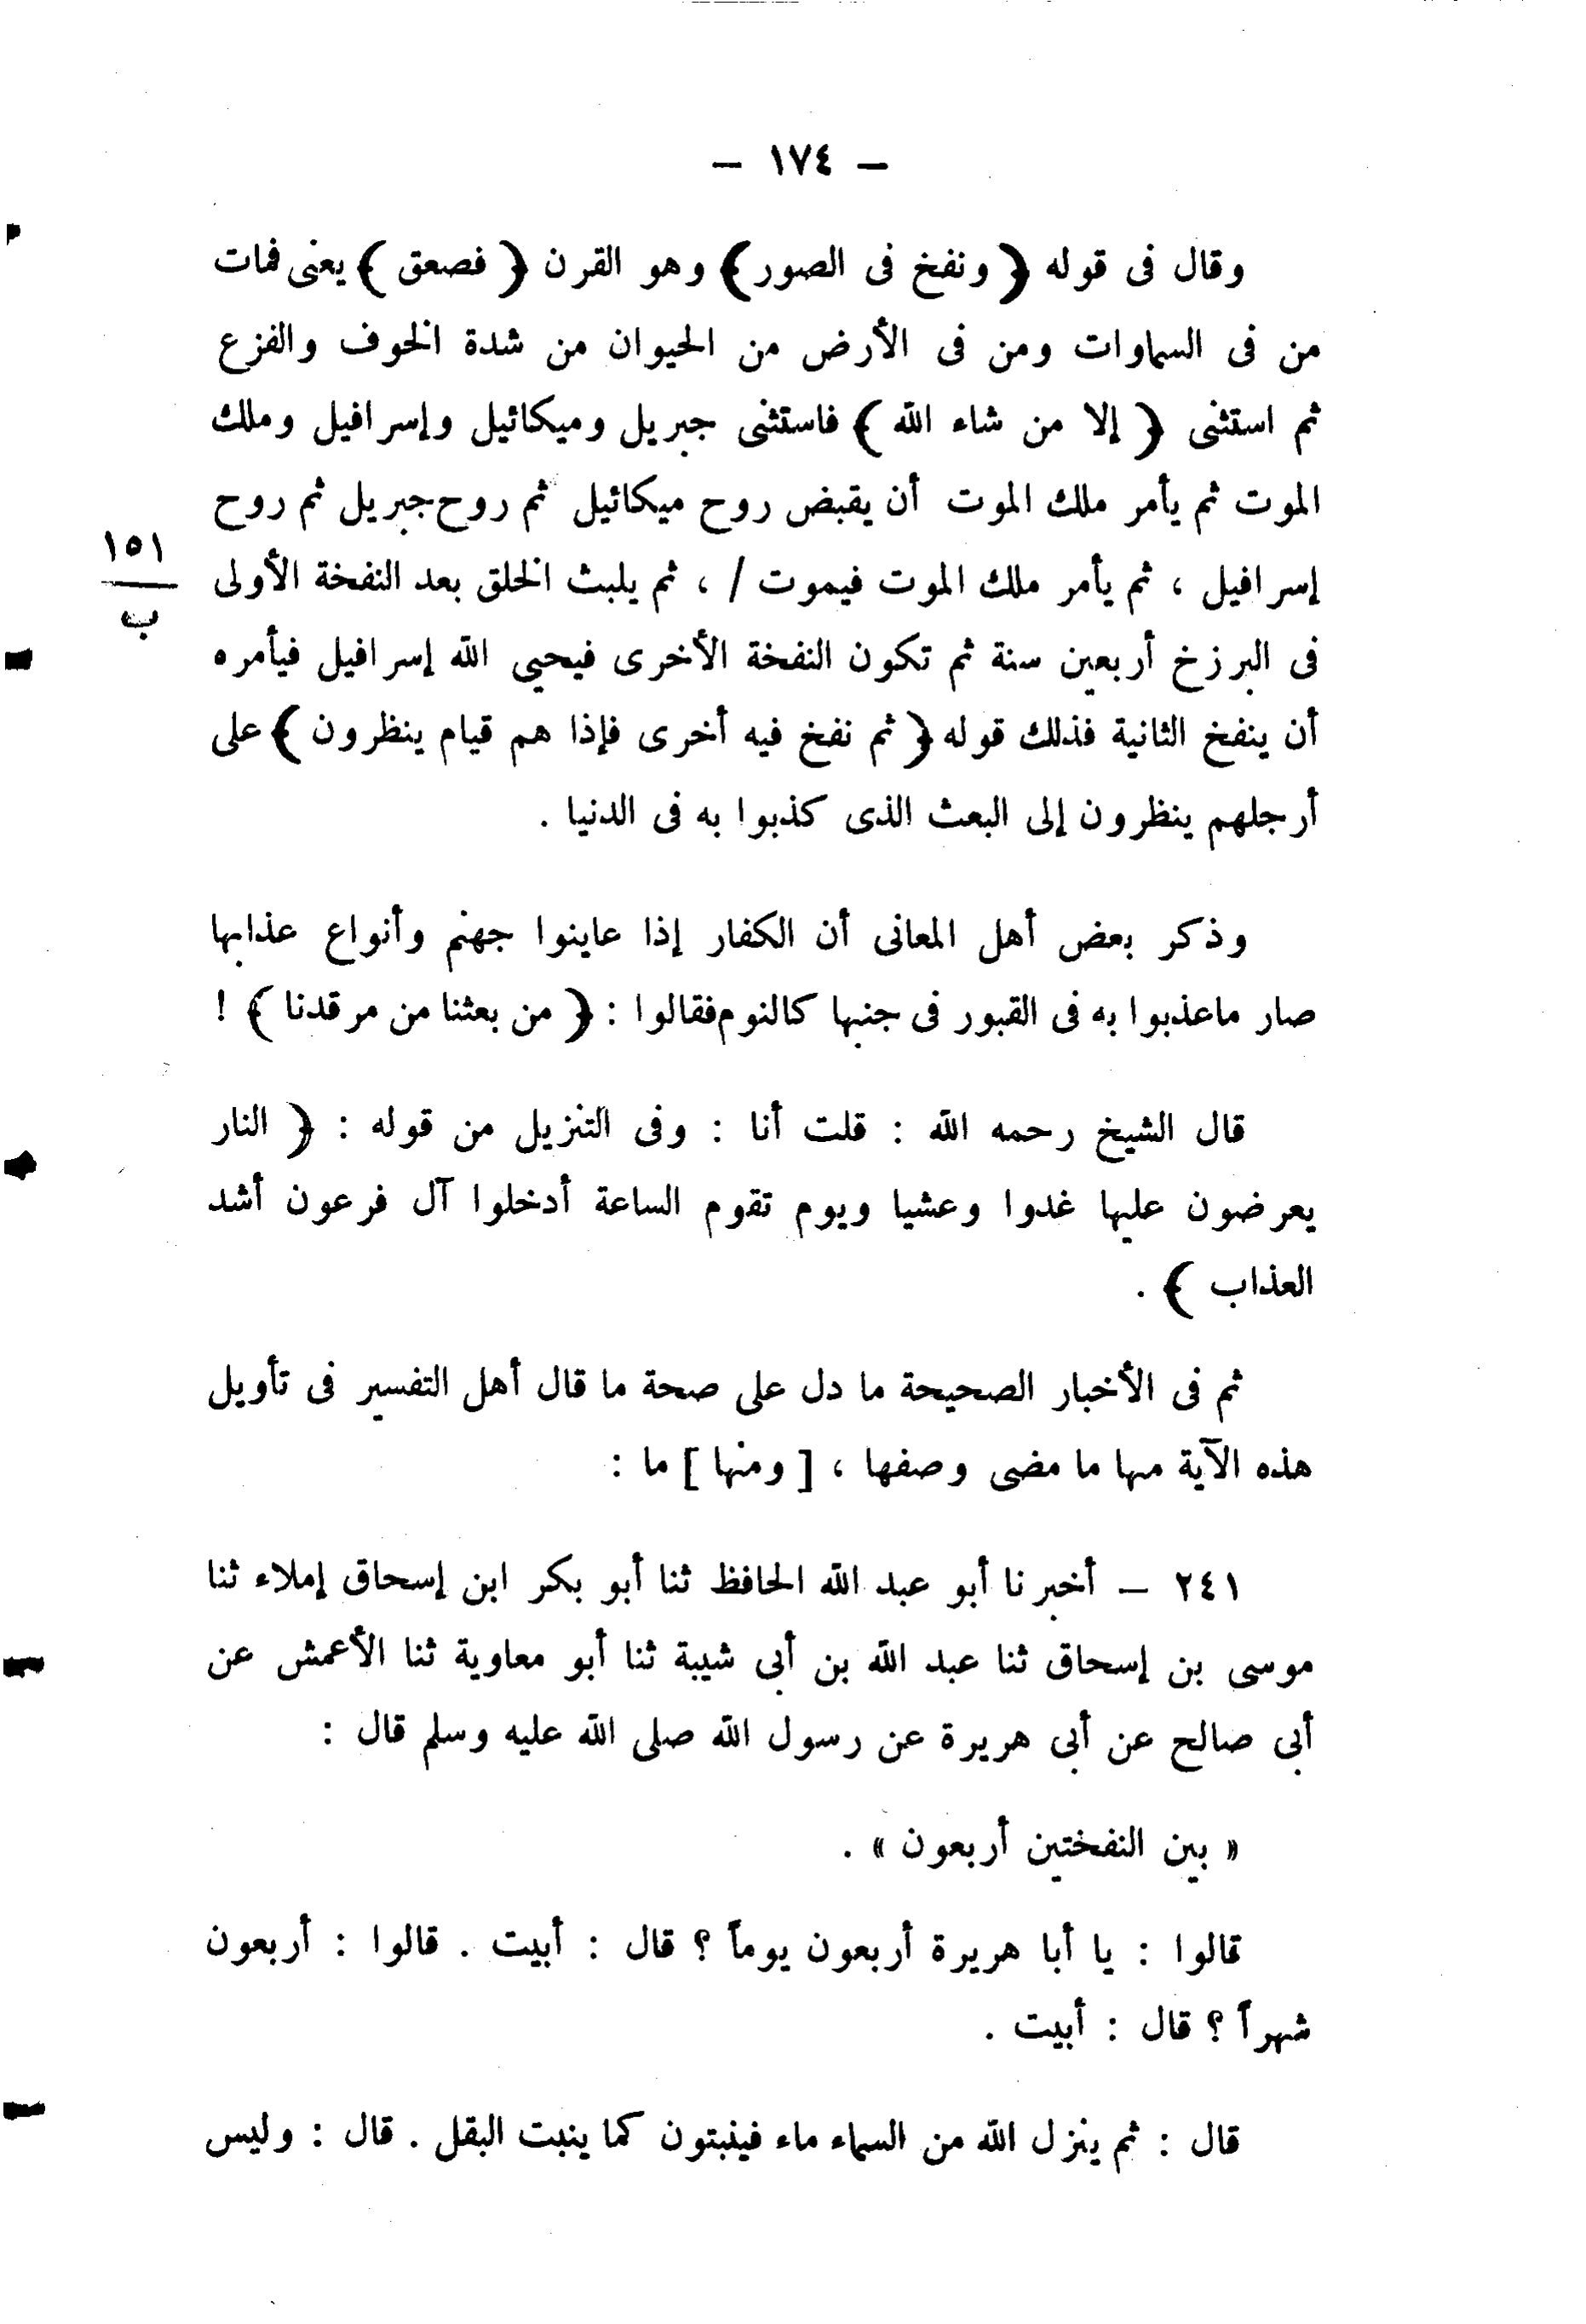 — ١٧٤ —
وقال فى قوله ﴿ ونفخ فى الصور ﴾ وهو القرن ﴿ فصعق ﴾ يعنى فمات
من فى السماوات ومن فى الأرض من الحيوان من شدة الخوف والفزع
ثم استثنى ﴿ إلا من شاء الله ﴾ فاستثنى جبريل وميكائيل وإسرافيل وملك
الموت ثم يأمر ملك الموت أن يقبض روح ميكائيل ثم روح جبريل ثم روح
إسرافيل ، ثم يأمر ملك الموت فيموت / ، ثم يلبث الخلق بعد النفخة الأولى
١٥١
ب
فى البرزخ أربعين سنة ثم تكون النفخة الأخرى فيحيي الله إسرافيل فيأمره
أن ينفخ الثانية فذلك قوله ﴿ ثم نفخ فيه أخرى فإذا هم قيام ينظرون ﴾ على
أرجلهم ينظرون إلى البعث الذى كذبوا به فى الدنيا .
وذكر بعض أهل المعانى أن الكفار إذا عاينوا جهنم وأنواع عذابها
صار ماعذبوا به فى القبور فى جنبها كالنوم فقالوا : ﴿ من بعثنا من مرقدنا ﴾ !
قال الشيخ رحمه الله : قلت أنا : وفى التنزيل من قوله : ﴿ النار
يعرضون عليها غدوا وعشيا ويوم تقوم الساعة أدخلوا آل فرعون أشد
العذاب ﴾ .
ثم فى الأخبار الصحيحة ما دل على صحة ما قال أهل التفسير فى تأويل
هذه الآية منها ما مضى وصفها ، [ ومنها ] ما :
٢٤١ — أخبرنا أبو عبد الله الحافظ ثنا أبو بكر ابن إسحاق إملاء ثنا
موسى بن إسحاق ثنا عبد الله بن أبى شيبة ثنا أبو معاوية ثنا الأعمش عن
أبى صالح عن أبى هريرة عن رسول الله صلى الله عليه وسلم قال :
« بين النفختين أربعون » .
قالوا : يا أبا هريرة أربعون يوماً ؟ قال : أبيت . قالوا : أربعون
شهراً ؟ قال : أبيت .
قال : ثم ينزل الله من السماء ماء فينبتون كما ينبت البقل . قال : وليس